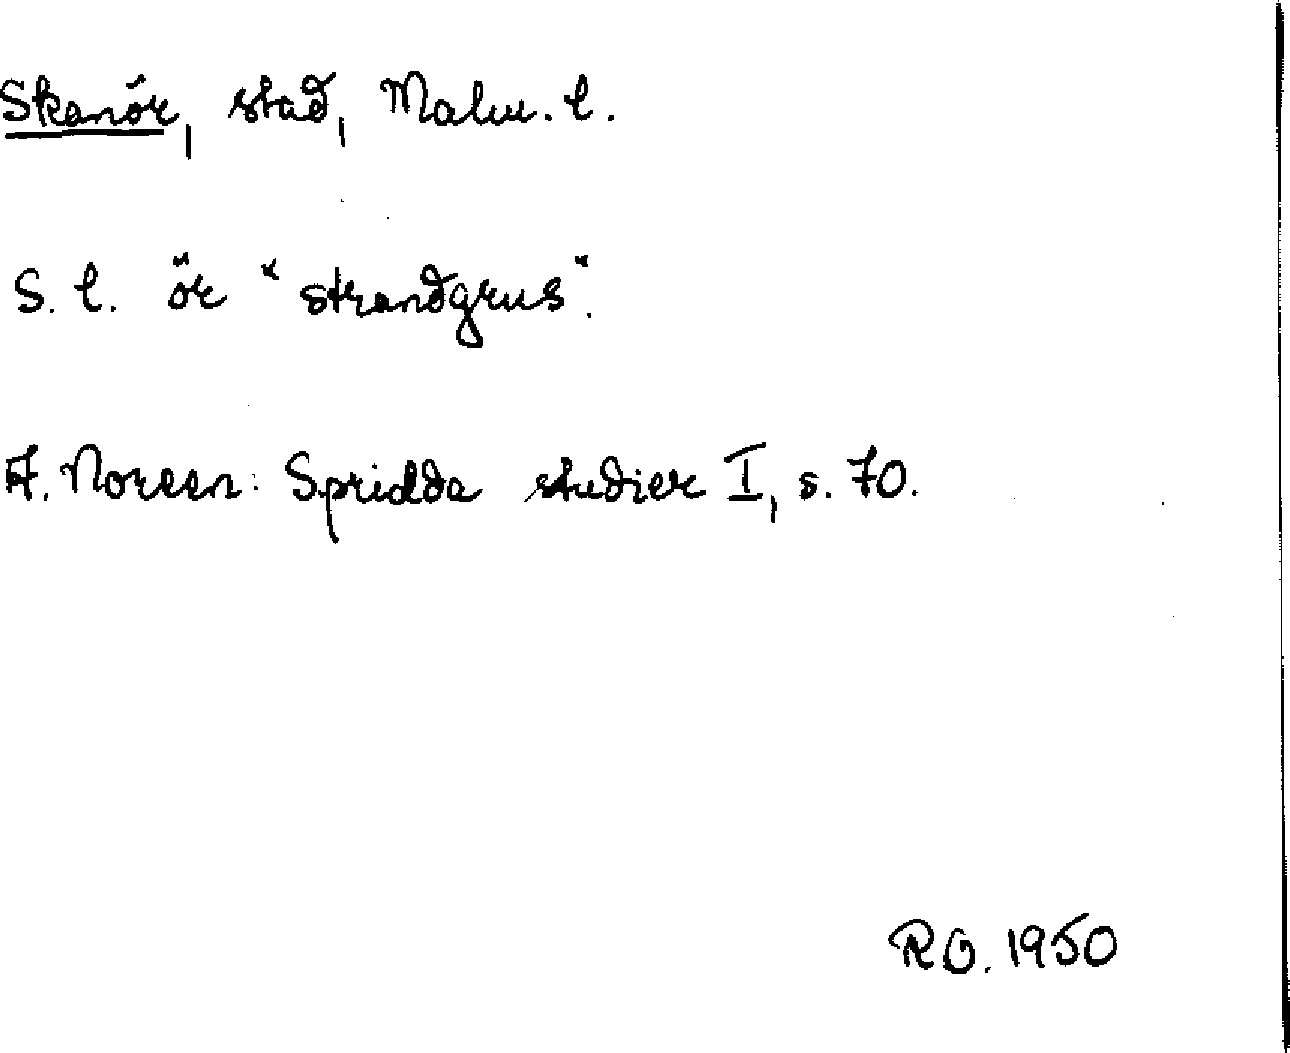 Skanör, stad, Malm. l.
S. l. ör "strandgrus".
A. Noreen: Spridda studier I, s. 70.
RO. 1950